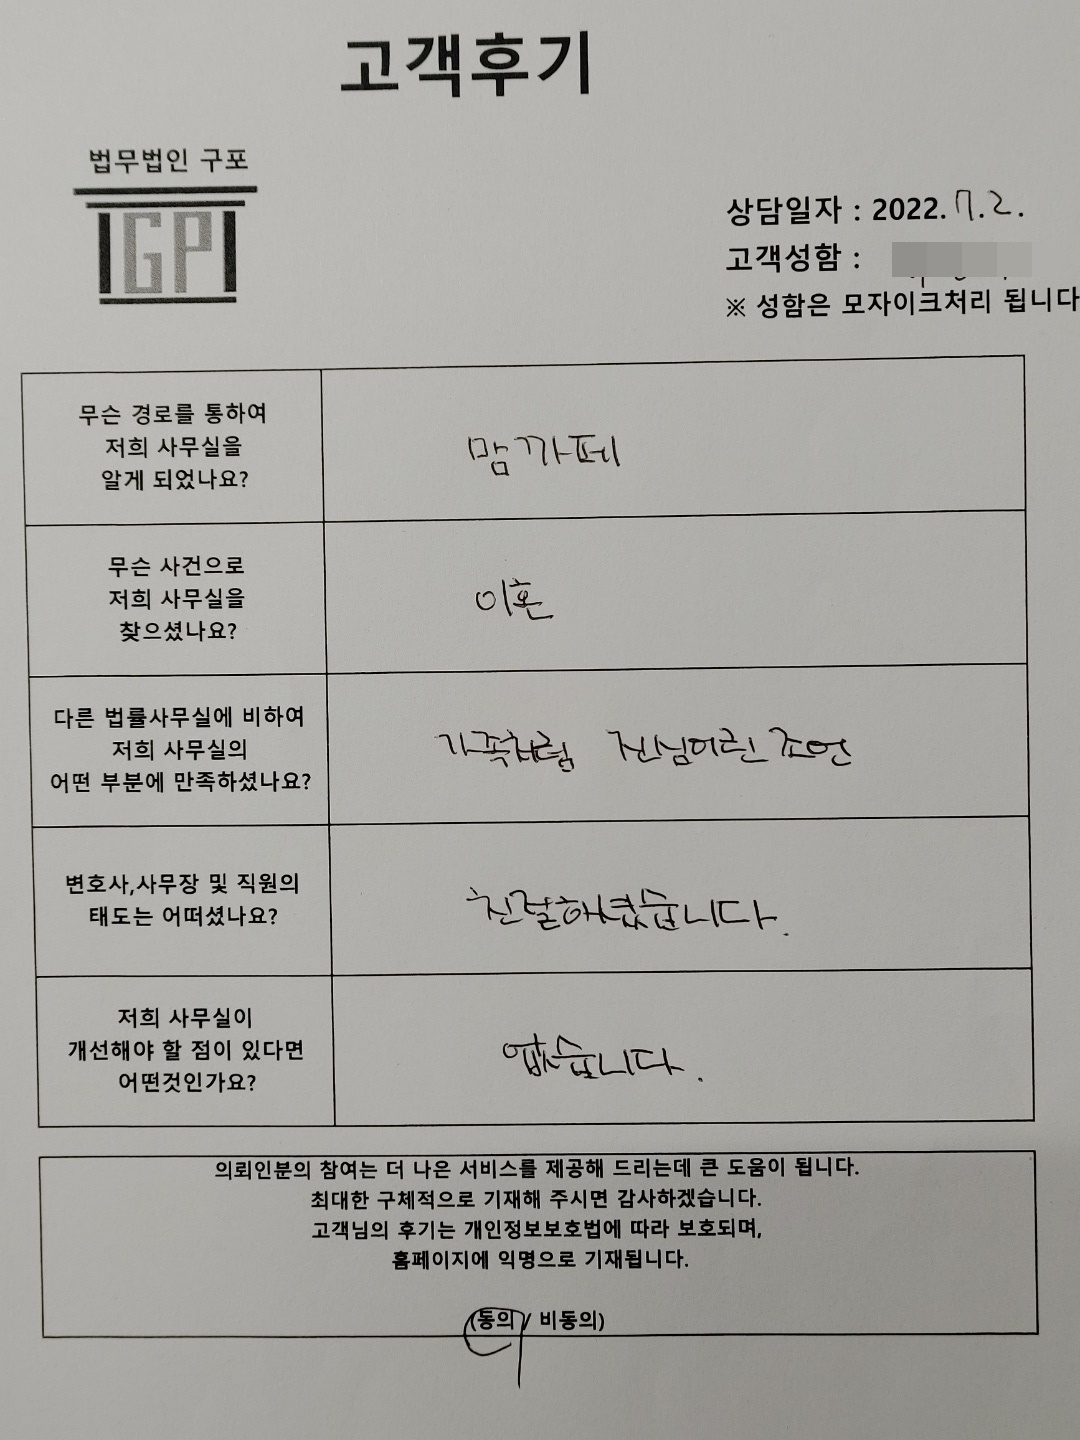 고객후기
법무법인 구포
IGPI
상담일자 : 2022. 7. 2.
고객성함 :
※ 성함은 모자이크처리 됩니다
무슨 경로를 통하여
저희 사무실을
알게 되었나요?
맘까페
무슨 사건으로
저희 사무실을
찾으셨나요?
이혼
다른 법률사무실에 비하여
저희 사무실의
어떤 부분에 만족하셨나요?
가족처럼 진심어린 조언
변호사,사무장 및 직원의
태도는 어떠셨나요?
친절하셨습니다.
저희 사무실이
개선해야 할 점이 있다면
어떤것인가요?
없습니다.
의뢰인분의 참여는 더 나은 서비스를 제공해 드리는데 큰 도움이 됩니다.
최대한 구체적으로 기재해 주시면 감사하겠습니다.
고객님의 후기는 개인정보보호법에 따라 보호되며,
홈페이지에 익명으로 기재됩니다.
(동의 / 비동의)